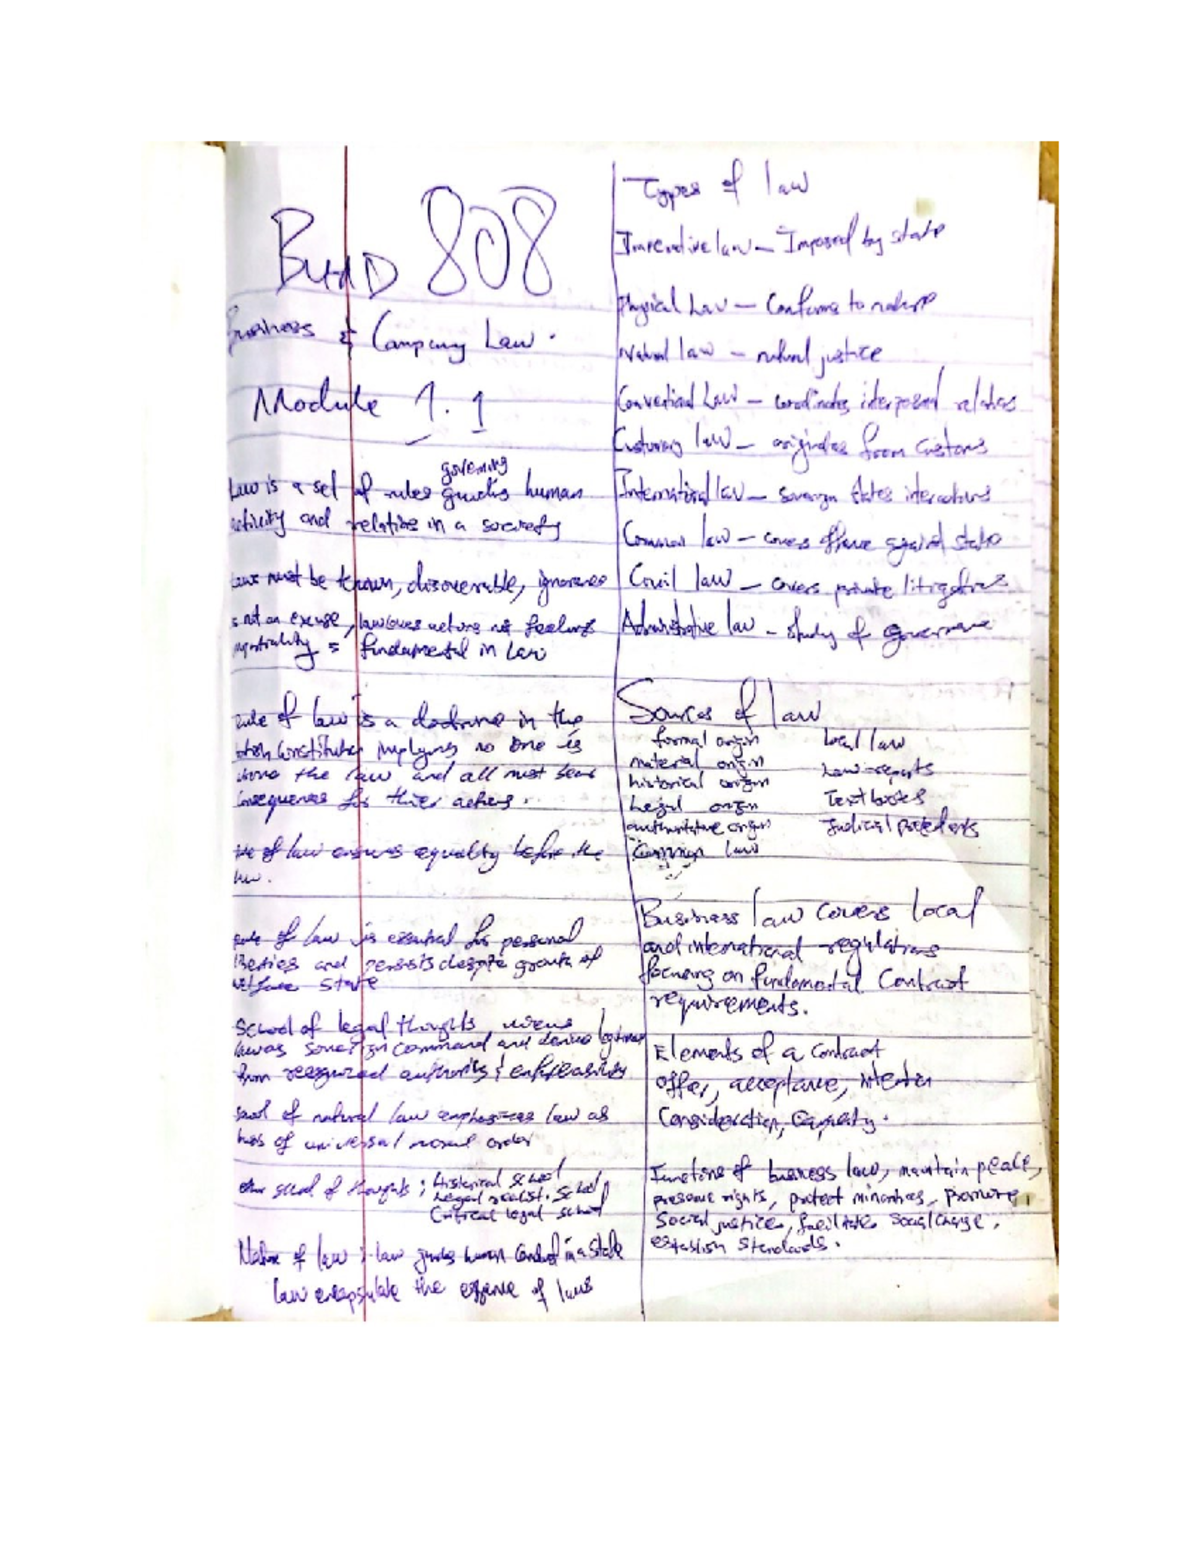 BUAD 808
Business & Company Law.
Module 1.1
governing
Law is a set of rules guides human
activity and relative in a society
Laws must be known, discoverable, ignorance
is not an excuse, law covers actions not feelings
impartiality = fundamental in law
rule of law is a doctrine in the
constitution implying no one is
above the law and all must bear
consequences for their actions.
rule of law ensures equality before the
law.
rule of law is essential for personal
liberties and persists despite growth of
welfare state
School of legal thoughts, views
law as sovereign command and derive legitimacy
from recognized authority & enforceability
school of natural law emphasizes law as
of universal moral order
other school of thoughts; Historical school
Legal realist school
Critical legal school
Nature of law : law guides human conduct in a state
law encapsulate the essence of laws
Types of law
Imperative law - Imposed by state
Physical Law - Conforms to nature
Natural law - natural justice
Conventional Law - coordinates interposed relations
Customary law - originates from customs
International law - sovereign states interactions
Common law - covers offence against state
Civil law - covers private litigations
Administrative law - study of governance
Sources of law
formal origin Local law
material origin Law reports
historical origin Textbooks
Legal origin Judicial precedents
authoritative origin
Common law
Business law covers local
and international regulations
focusing on fundamental Contract
requirements.
Elements of a contract
offer, acceptance, intention
Consideration, Capacity.
Functions of business law, maintain peace,
preserve rights, protect minorities, promote,
Social justice, facilitates social change,
establish standards.